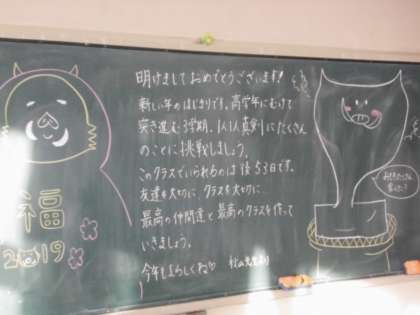 明けましておめでとうございます!
新しい年のはじまりです。高学年にむけて
突き進む3学期。1人1人真剣にたくさん
のことに挑戦しましょう。
このクラスでいられるのは後53日です。
友達を大切に、クラスを大切に、
最高の仲間達と最高のクラスを作って
いきましょう。
今年もよろしくね♡
福
2019